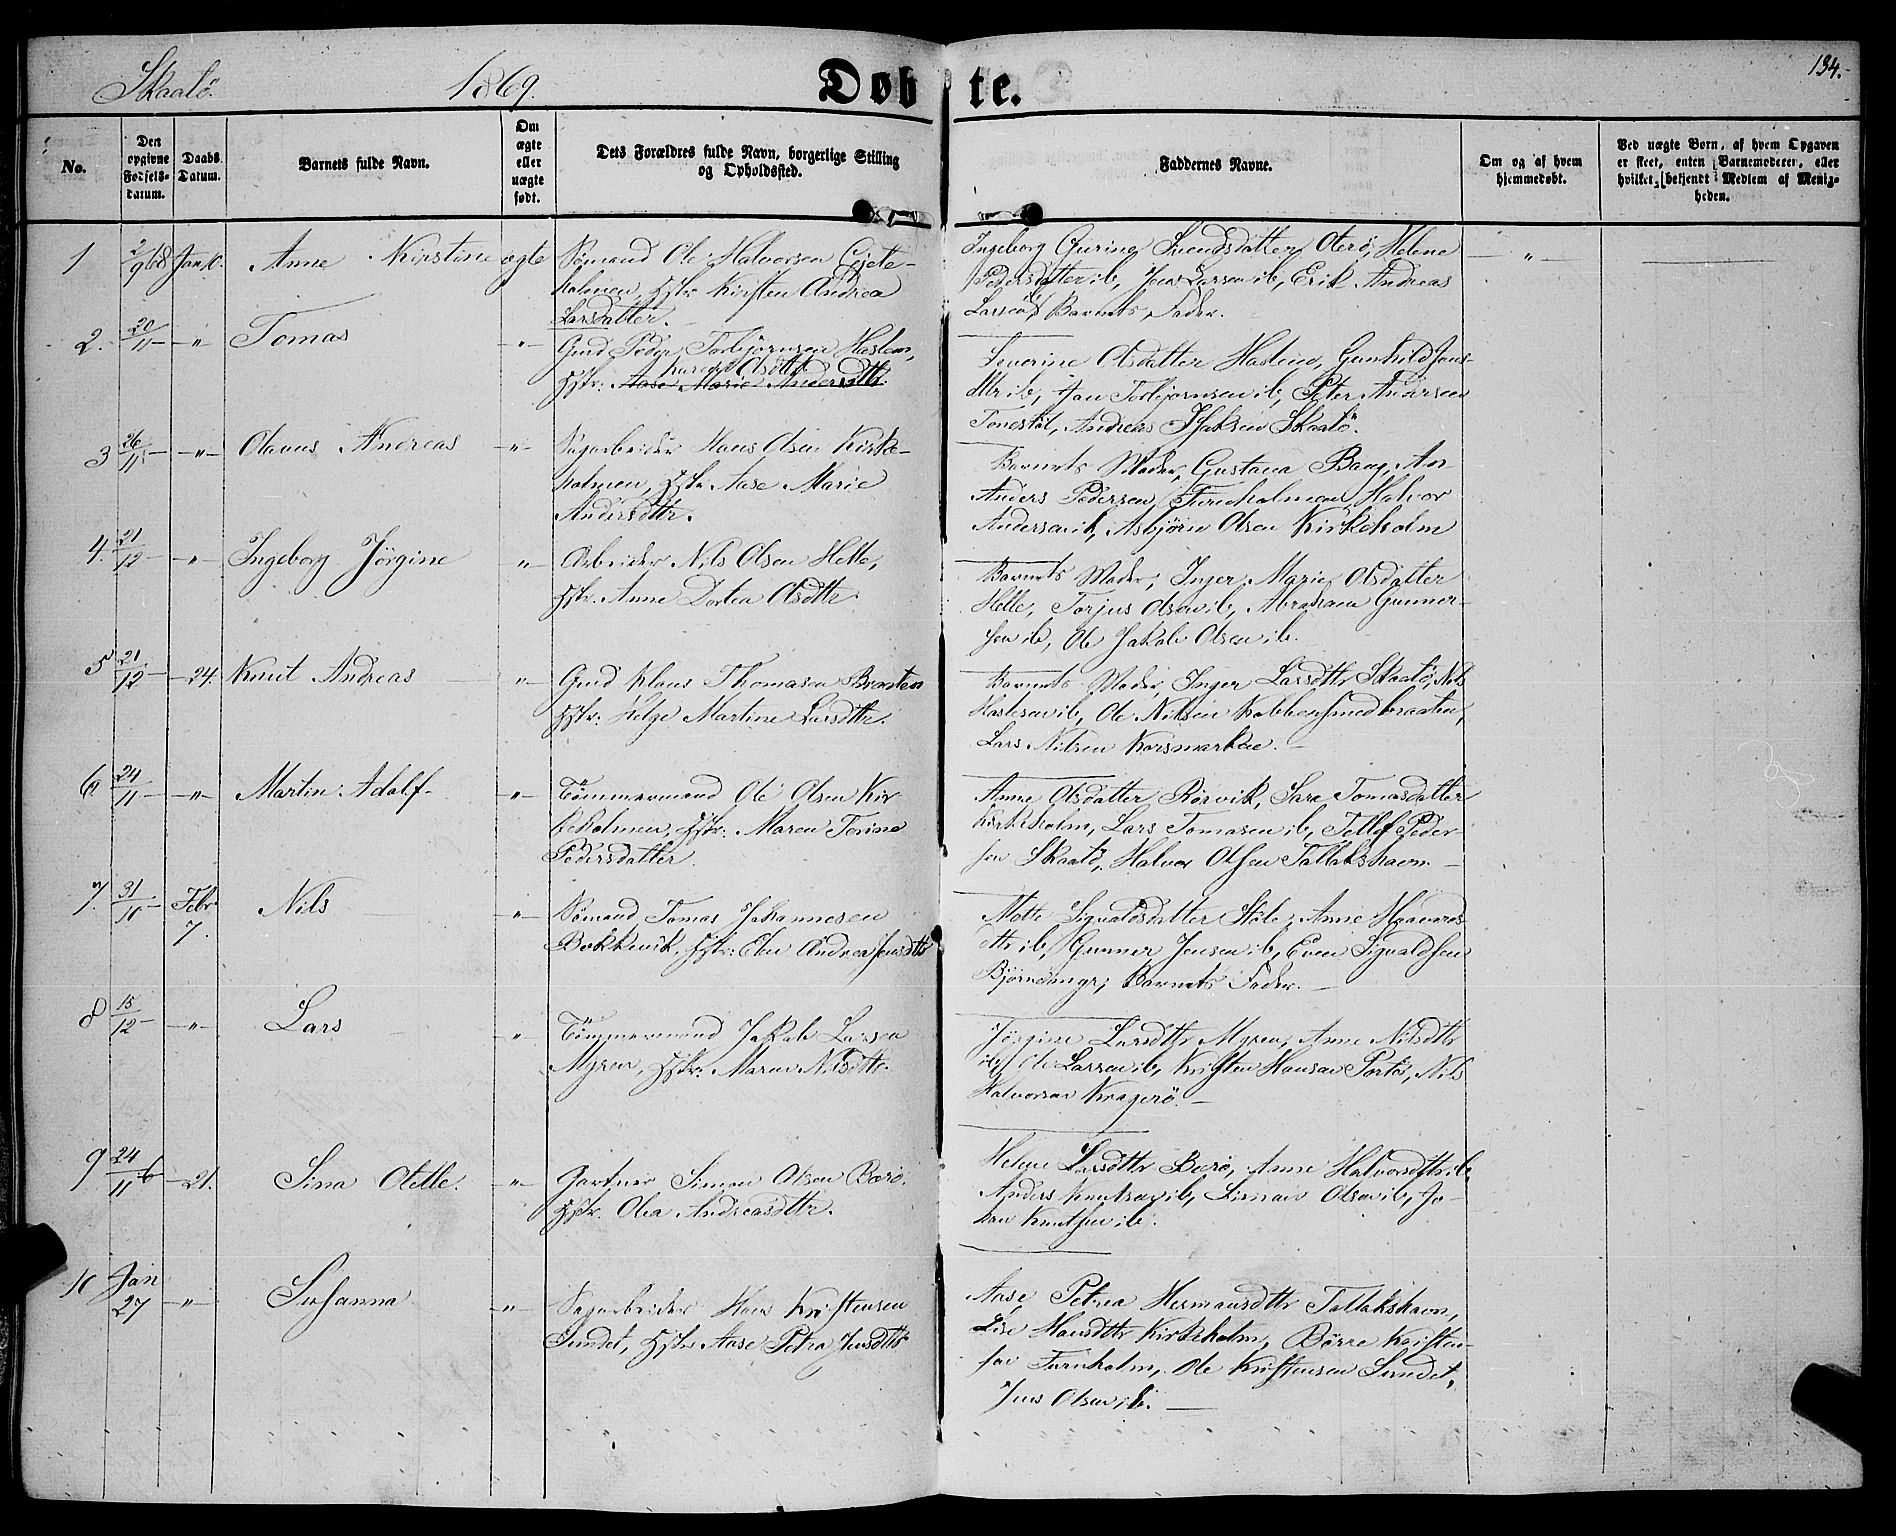 Skaatö. 1869. Døbte. 134.
No.
Den opgivne Fødsels-datum.
Daabs Datum.
Barnets fulde Navn.
Om ægte eller uægte født.
Dets Forældres fulde Navn, borgerlige Stilling og Opholdssted.
Faddernes Navne.
Om og af hvem hjemmedøbt.
Ved uægte Børn, af hvem Opgaven er skeet, enten Barnemoderen, eller hvilket bekjendt Medlem af Menigheden.
1 2/9 68 Jan 10. Anne Kirstine ægte Sømand Ole Halvorsen Gjete-
holmen, Hstr Kirsten Andrea
Larsdatter.
Ingeborg Guring Svendsdatter Oterö, Helene
Pedersdatter ib, Jens Larsen ib, Erik Andreas
Larsen ib, Barnets Fader.
2. 20/11 " Tomas " Gmd Peder Torbjörnsen Haslem,
Karen Olsdtr
Hstr: Aase Marie Andersdtr.
Severine Olsdatter Haslem, Gunhild Jens-
dtr ib, Jan Torbjörnsen ib, Peter Andersen
Tonestöl, Andreas Isaksen Skaatö.
3 26/11 " Olavus Andreas " Sagarbeider Hans Olsen Kirke-
holmen, Hstr Aase Marie
Andersdtr.
Barnets Moder, Gustava Bang,
Anders Pedersen Furuholmen, Halvor
Andersen ib, Asbjörn Olsen Kirkeholm
4. 21/12 " Ingeborg Jörgine " Arbeider Nils Olsen Helle,
Hstr. Anne Dortea Olsdtr.
Barnets Moder, Inger Marie Olsdatter
Helle, Torjus Olsen ib, Abraham Gunner-
sen ib, Ole Jakob Olsen ib.
5 21/12 24. Knut Andreas " Gmd Klaus Thomasen Braaten
Hstr: Helge Martine Larsdtr.
Barnets Moder, Inger Larsdtr Skaatö, Nils
ib, Ole Nilsen Kobbersmedbraaten,
Lars Nilsen Korsmarken.
6. 24/11 " Martin Adolf " Tömmermand Ole Olsen Kir
keholmen, Hstr: Maren Torine
Pedersdatter.
Anne Olsdatter Rörvik, Sara Tomasdatter
Kirkeholm, Lars Tomasen ib, Tellef Peder
sen Skaatö, Halvor Olsen Tallakshavn.
7. 31/10 Febr 7. Nils " Sømand Tomas Johannesen
Bekkevik, Hstr: Elen Andrea Jensdtr
Mette Sigvaldsdatter Støle, Anne Haavords
dtr ib, Gunner Jensen ib, Even Sigvaldsen
Björnsangr, Barnets Fader.
8 15/12 " Lars " Tömmermand Jakob Larsen
Myren, Hstr: Maren Nilsdtr.
Jörgine Larsdtr Myren, Anne Nilsdtr
ib, Ole Larsen ib, Kristen Hansen Portör, Nils
Halvorsen Kragerö.
9 24/11 21. Sina Otelle. " Gartner Simon Olsen Berö.
Hstr. Olea Andreasdtr.
Helene Larsdtr Berö, Anne Halvorsdtr ib
Anders Knutsen ib, Simon Olsen ib, Jo-
han Knutsen ib.
10 Jan 27 " Susanna " Sagarbeider Hans Kristensen
Sundet, Hstr Aase Petra Jensdtr
Aase Petrea Hermansdtr Tallakshavn,
Lise Hansdtr Kirkeholm, Börre Kristen-
sen Furuholm, Ole Kristensen Sundet,
Jens Olsen ib.